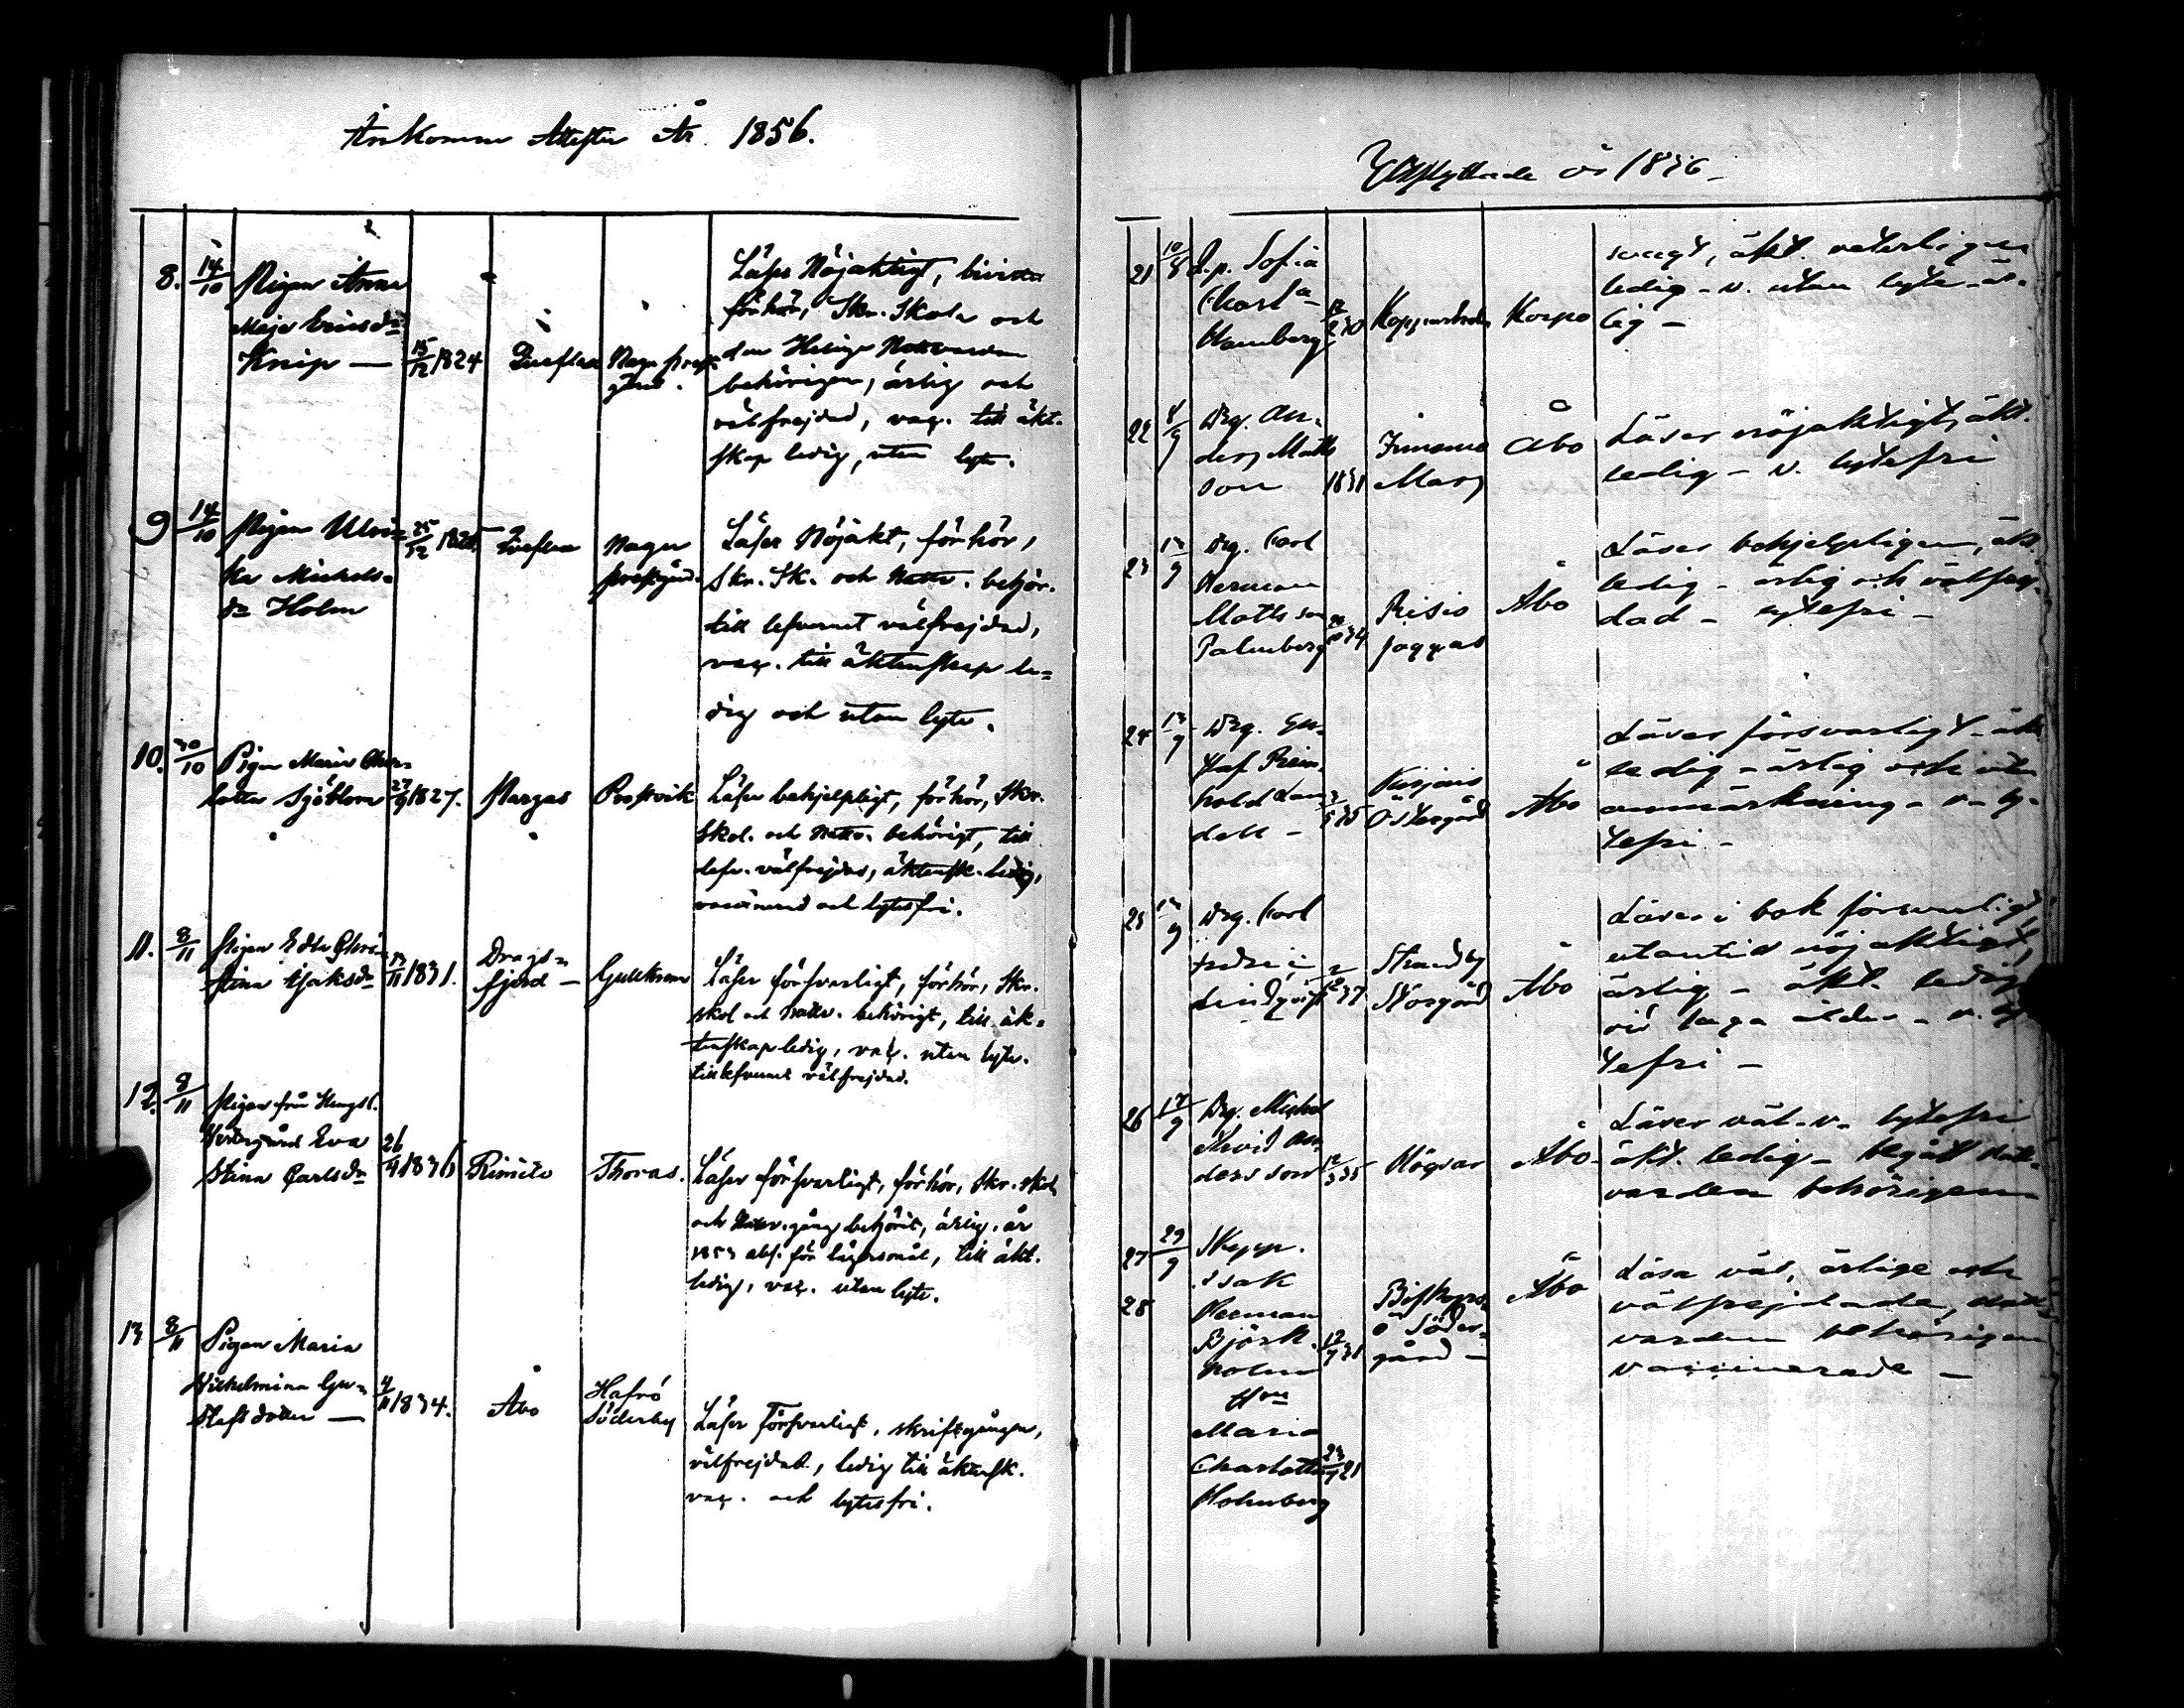 Ankomne Attester År 1856.
8. 14/10 Pigan Anna
Maja Ericsdr
Knip — 15/12 1824
Nagu prest-
gård.
Läser Nöjaktigt, bivistat
förhör, Skr. Skola och
den Heliga Nattvarden
behörigen, ärlig och
välfrejdad, vac. till äkt-
skap ledig, utan lyte.
9 14/10 Pigan Ulri-
ka Michels-
dr Holm
25/12 1825
Nagu
prestgård.
Läser Nöjakt, förhör,
Skr. Sk. och Nattv. behör.
till lefvernet välfrejdad,
vac. till äktenskap le-
dig och utan lyte.
10. 30/10 Pigan Maria Char-
lotta Sjöblom 27/9 1827. Pargas Prostvik
Läser behjelpligt, förhör, Skr.
Skol. och Nattv. behörigt, till
lefv. välfrejdad, äktensk. ledig,
vaccinerad och lytesfri.
11. 8/11 Pigan Edla Chri-
stina Isaksdr 13/11 1831.
Drags-
fjerd — Gullkrona
Läser försvarligt, förhör, Skr.
skol och Nattv. behörigt, till äk-
tenskap ledig, vac. utan lyte.
till lefvernet välfrejdad.
12. 8/11 Pigan från Hengsl.
Westergård Eva
Stina Carlsdr 26/4 1836 Rimito Thoras.
Läser försvarligt, förhör, Skr. skol
och Nattv. gång behörit, ärlig. år
1853 abs. för lägersmål, till äkt.
ledig, vac. utan lyte.
13 8/11 Pigan Maria
Wilhelmina Gu-
stafsdotter — 4/11 1834. Åbo
Hafrö
Söderby
Läser Försvarligt, skriftgången,
välfrejdad, ledig till äktensk.
vac. och lytesfri.
Utflyttade år 1856 —
21 10/8 D.p. Sofia
Charl a
Hamberg 30 Korpo
svagt, äkt. veterligen
ledig - v. utan lyte - är-
lig —
22 4/9 Drg. An-
ders Matts
son 1831
Mary
Åbo
Läser nöjaktigt, äkt.
ledig - v. lytefri
23 13/9 Drg. Carl
Herman
Mattsson
Palmberg 34
Pisio
jaggas
Åbo
Läser behjelpligen, äkt.
ledig - ärlig och välfrej-
dad - lytefri —
24 13/9 Drg. Gu-
staf Rein-
hold Lan
dell — 35
Kirjais
Östergård
Åbo
Läser försvarligt - äkt
ledig - ärlig och utan
anmärkning - v - ly-
tefri —
25 13/9 Drg. Carl
Fredric
Lindqvist 37
Strandby
Storgård
Åbo
Läser i bok försvarligt,
utantill nöjaktigt,
ärlig - äkt. ledig
vid laga ålder - v. ly
tefri —
26 17/9 Drg. Michel
Arvid An-
dersson 12/3 35 Högsar Åbo
Läser väl - v. lytefri
äkt. ledig - begått natt-
varden behörigen
27 29/9 Skepp.
Isak
28 Herman
Björk-
holm 12/9 21
Hu
Maria
Charlotta 23/9 21
Holmberg
Biskops-
ö Söder-
gård —
Åbo
Läsa väl, ärlige och
välfrejdade, natt-
varden behörigen
vaccinerade —